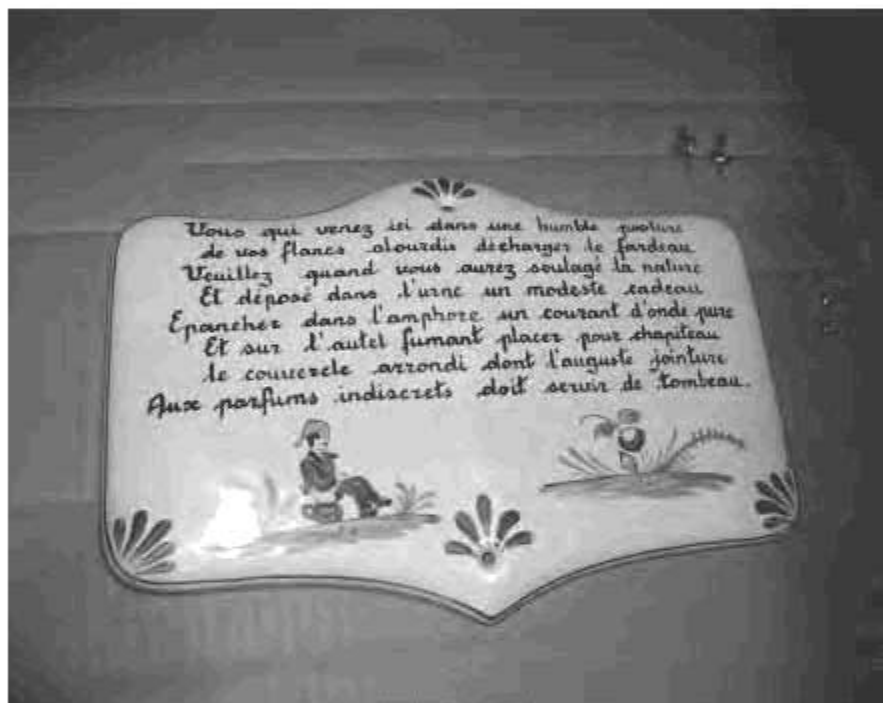 Vous qui venez ici dans une humble posture
de vos flancs alourdis décharger le fardeau
Veuillez quand vous aurez soulagé la nature
Et déposé dans l'urne un modeste cadeau
Epancher dans l'amphore un courant d'onde pure
Et sur l'autel fumant placer pour chapiteau
le couvercle arrondi dont l'auguste jointure
Aux parfums indiscrets doit servir de tombeau.